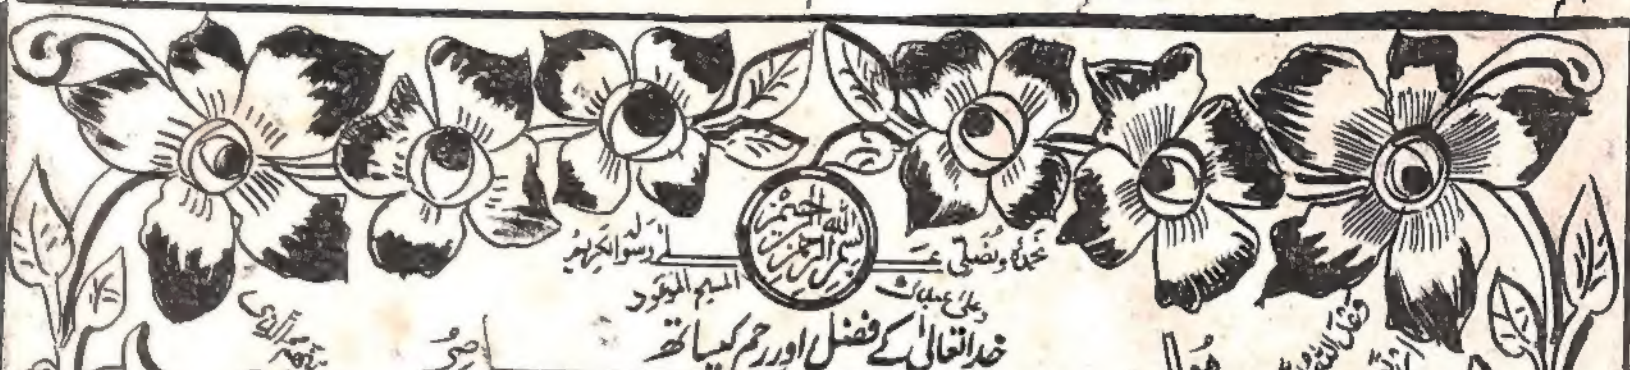 بسم اللہ الرحمن الرحیم
نحمدہ ونصلی علیٰ رسولہ الکریم
وعلیٰ عبدہ المسیح الموعود
خدا تعالیٰ کے فضل اور رحم کیساتھ
ھو